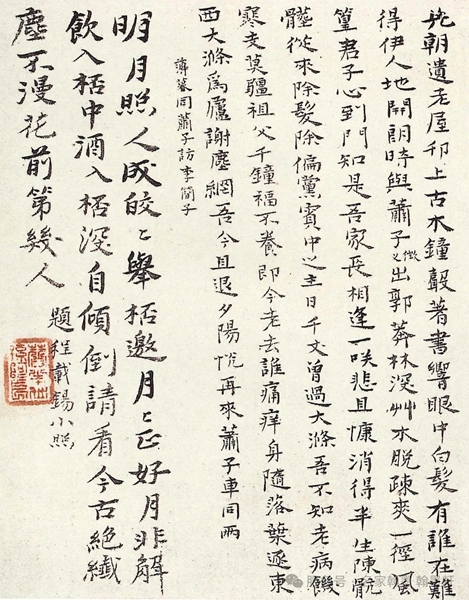 先朝遺老屋卯上古木鐘聲著書響眼中白髮有誰在難
得伊人地開朗時與蕭子徵乂出郭莽林深艸木脫疎爽一徑風
篁君子心到門知是吾家長相逢一咲悲且慷消得半生陳骯
髒從來除髮除偏黨賓中之主日千文曾過大滌吾不知老病饑
寒支莫疆祖父千鐘福不養即今老去誰痛痒身隨落葉逐東
西大滌爲廬謝塵網吾今且退夕陽怳再來蕭子車同兩
薄暮同蕭子訪李簡子
明月照人成皎〻舉桮邀月〻正好月非解
飲入桮中酒入桮深自傾倒請看今古絕纖
塵不漫花前第幾人
題程載錫小照